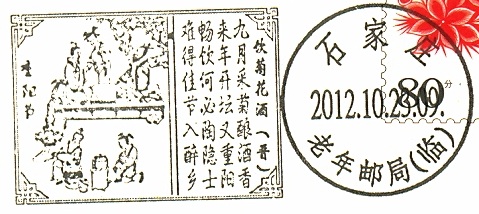 重阳节
饮菊花酒（晋）
九月采菊酿酒香
来年开坛又重阳
畅饮何必陶隐士
难得佳节入醉乡
石家庄
80分
2012.10.23.09.
老年邮局(临)